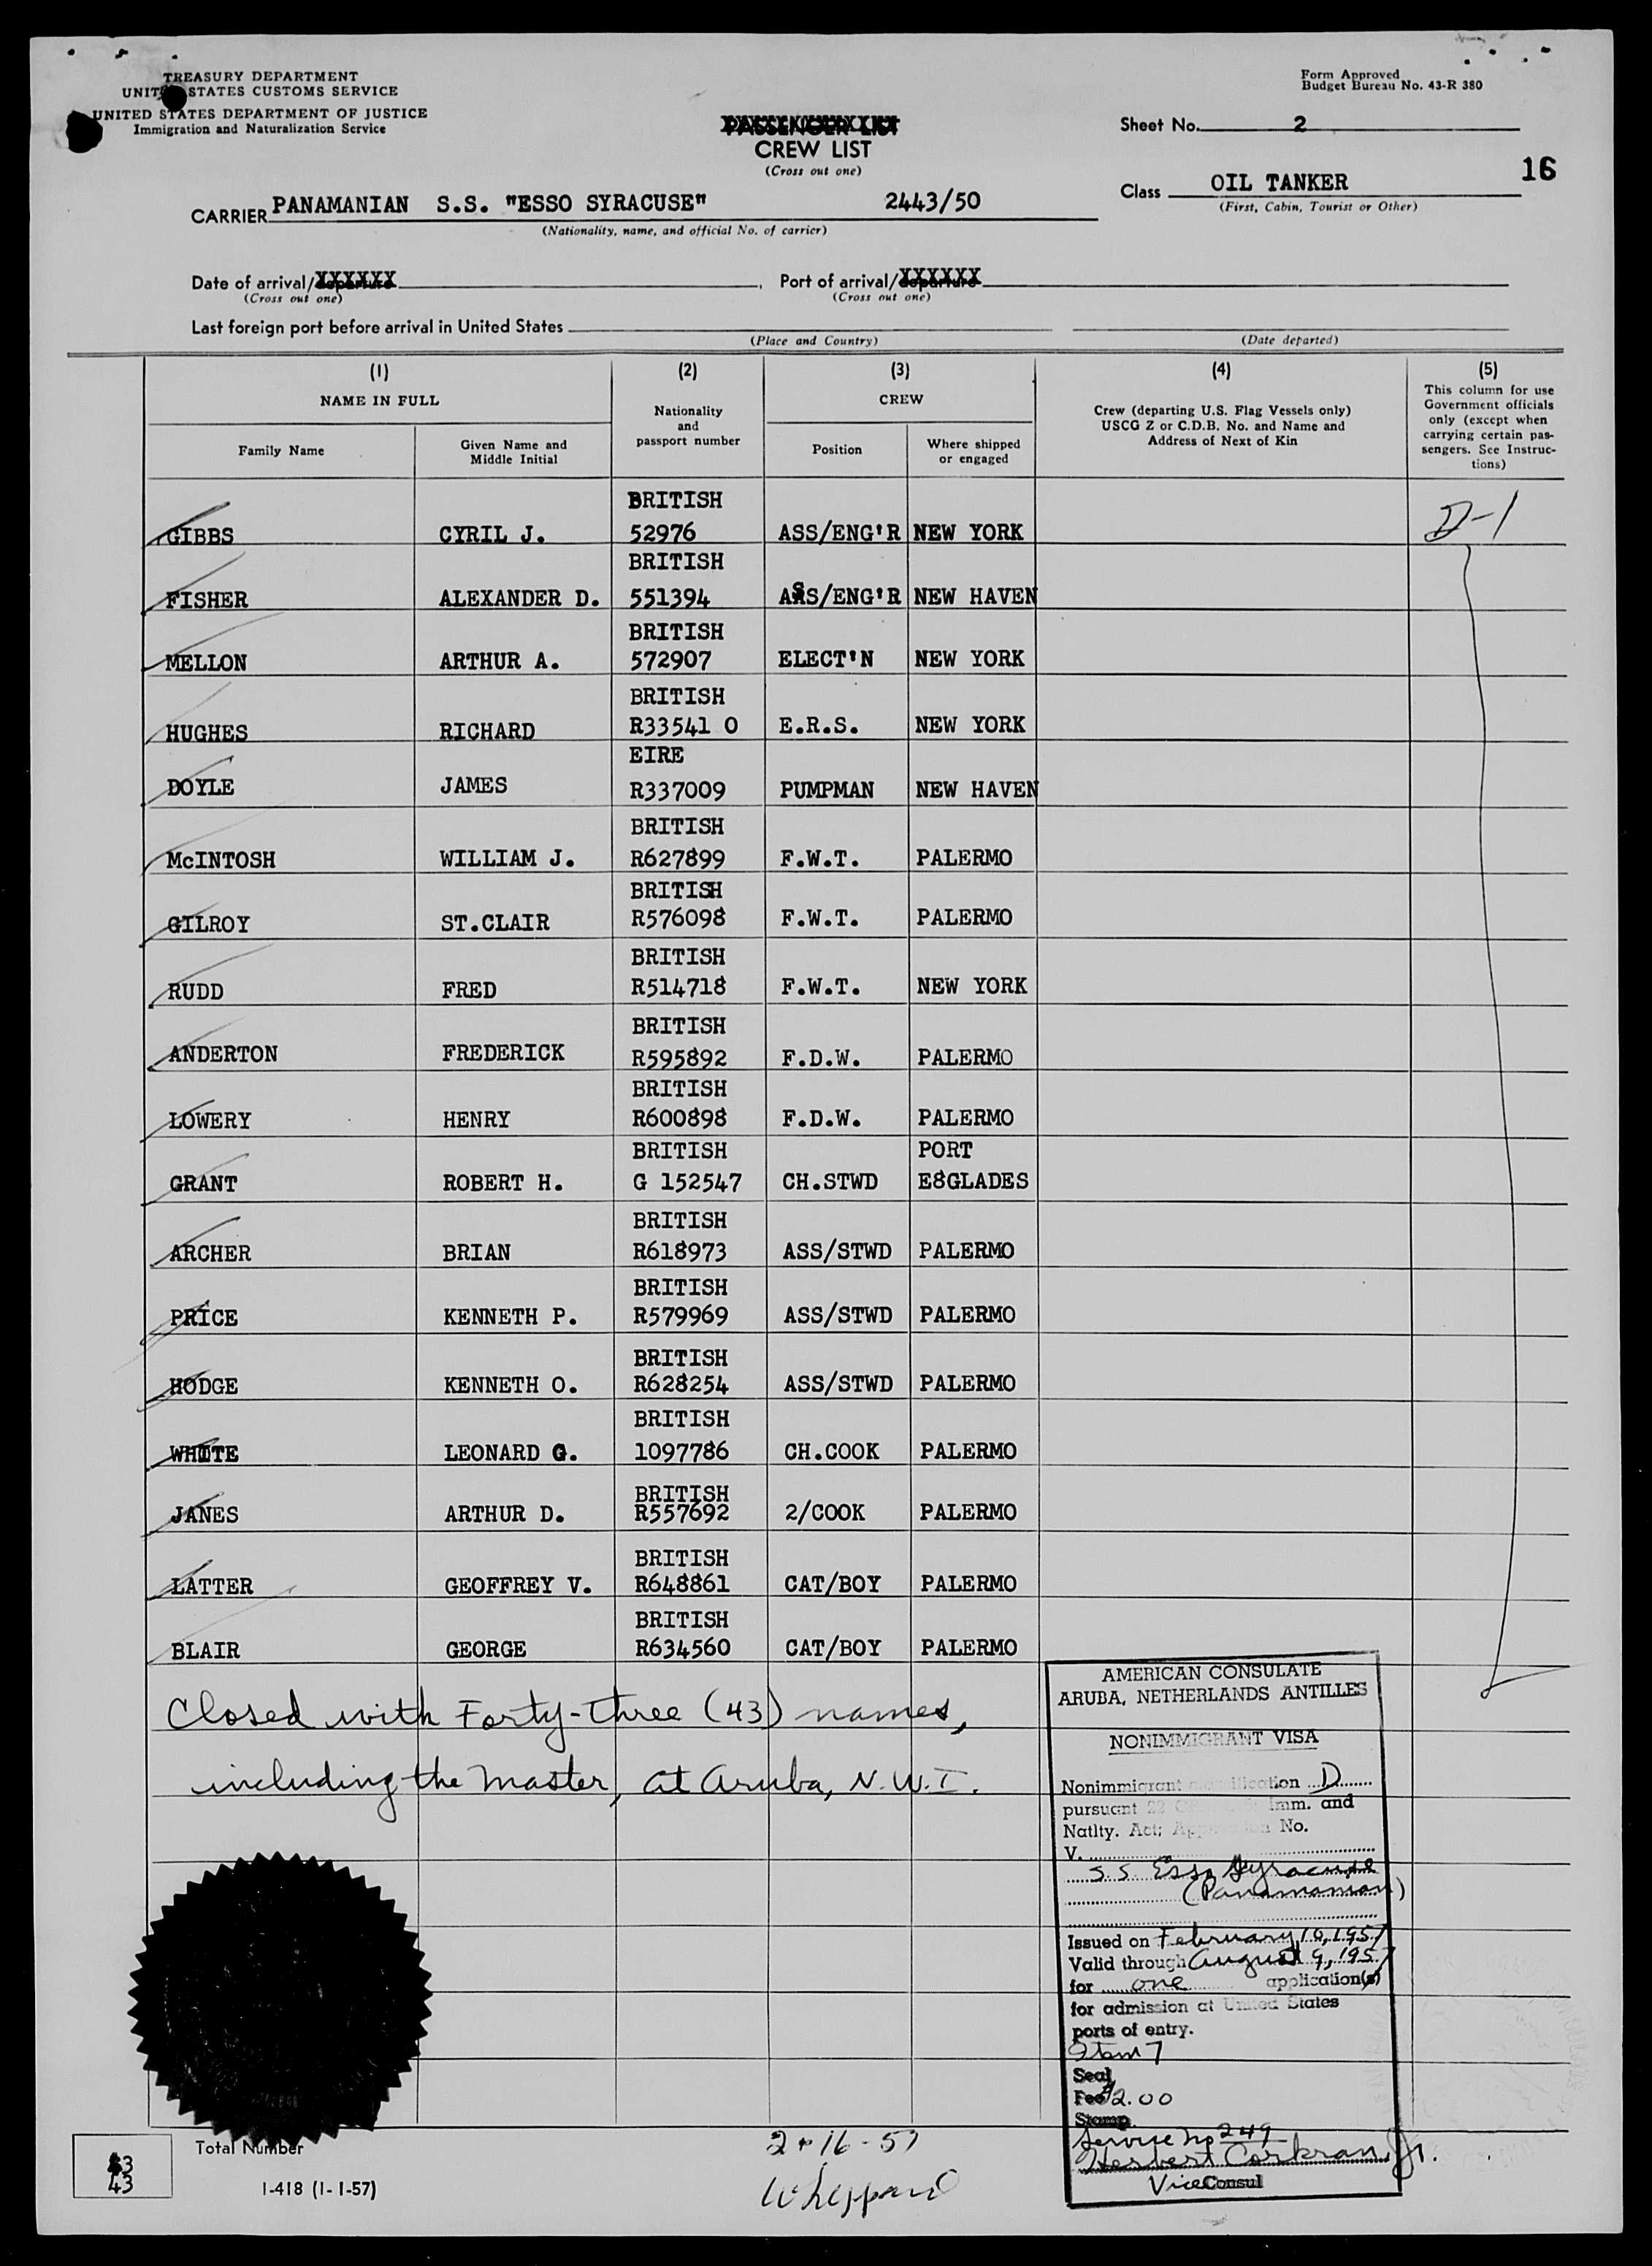 TREASURY DEPARTMENT
UNITED STATES CUSTOMS SERVICE
UNITED STATES DEPARTMENT OF JUSTICE
Immigration and Naturalization Service
Form Approved
Budget Bureau No. 43-R 380
PASSENGER LIST
CREW LIST
(Cross out one)
Sheet No. 2
16
Class OIL TANKER
(First, Cabin, Tourist or Other)
CARRIER PANAMANIAN S.S. "ESSO SYRACUSE" 2443/50
(Nationality, name, and official No. of carrier)
Date of arrival/departure Port of arrival/departure
(Cross out one) (Cross out one)
Last foreign port before arrival in United States
(Place and Country) (Date departed)
(1) (2) (3) (4) (5)
NAME IN FULL
Family Name
Given Name and Middle Initial
Nationality and passport number
CREW
Position
Where shipped or engaged
Crew (departing U.S. Flag Vessels only)
USCG Z or C.D.B. No. and Name and
Address of Next of Kin
This column for use
Government officials
only (except when
carrying certain pas-
sengers. See Instruc-
tions)
BRITISH
GIBBS CYRIL J. 52976 ASS/ENG'R NEW YORK D-1
BRITISH
FISHER ALEXANDER D. 551394 ASS/ENG'R NEW HAVEN
BRITISH
MELLON ARTHUR A. 572907 ELECT'N NEW YORK
BRITISH
HUGHES RICHARD R33541 0 E.R.S. NEW YORK
EIRE
DOYLE JAMES R337009 PUMPMAN NEW HAVEN
BRITISH
McINTOSH WILLIAM J. R627899 F.W.T. PALERMO
BRITISH
GILROY ST.CLAIR R576098 F.W.T. PALERMO
BRITISH
RUDD FRED R514718 F.W.T. NEW YORK
BRITISH
ANDERTON FREDERICK R595892 F.D.W. PALERMO
BRITISH
LOWERY HENRY R600898 F.D.W. PALERMO
BRITISH PORT
GRANT ROBERT H. G 152547 CH.STWD E8GLADES
BRITISH
ARCHER BRIAN R618973 ASS/STWD PALERMO
BRITISH
PRICE KENNETH P. R579969 ASS/STWD PALERMO
BRITISH
HODGE KENNETH O. R628254 ASS/STWD PALERMO
BRITISH
WHITE LEONARD G. 1097786 CH.COOK PALERMO
BRITISH
JANES ARTHUR D. R557692 2/COOK PALERMO
BRITISH
LATTER GEOFFREY V. R648861 CAT/BOY PALERMO
BRITISH
BLAIR GEORGE R634560 CAT/BOY PALERMO
Closed with Forty-three (43) names,
including the Master, at Aruba, N.W.I.
AMERICAN CONSULATE
ARUBA, NETHERLANDS ANTILLES
NONIMMIGRANT VISA
Nonimmigrant classification D
pursuant 22 Imm. and
Natlty. Act; Application No.
V.
S.S. Esso Syracuse
(Panamanian)
Issued on February 10, 1957
Valid through August 9, 1957
for one application(s)
for admission at United States
ports of entry.
Item 7
Seal
Fee $2.00
Stamp
Service No 249
Herbert Corkran, Jr.
Vice Consul
Total Number
43
43
I-418 (1-1-57)
2-16-57